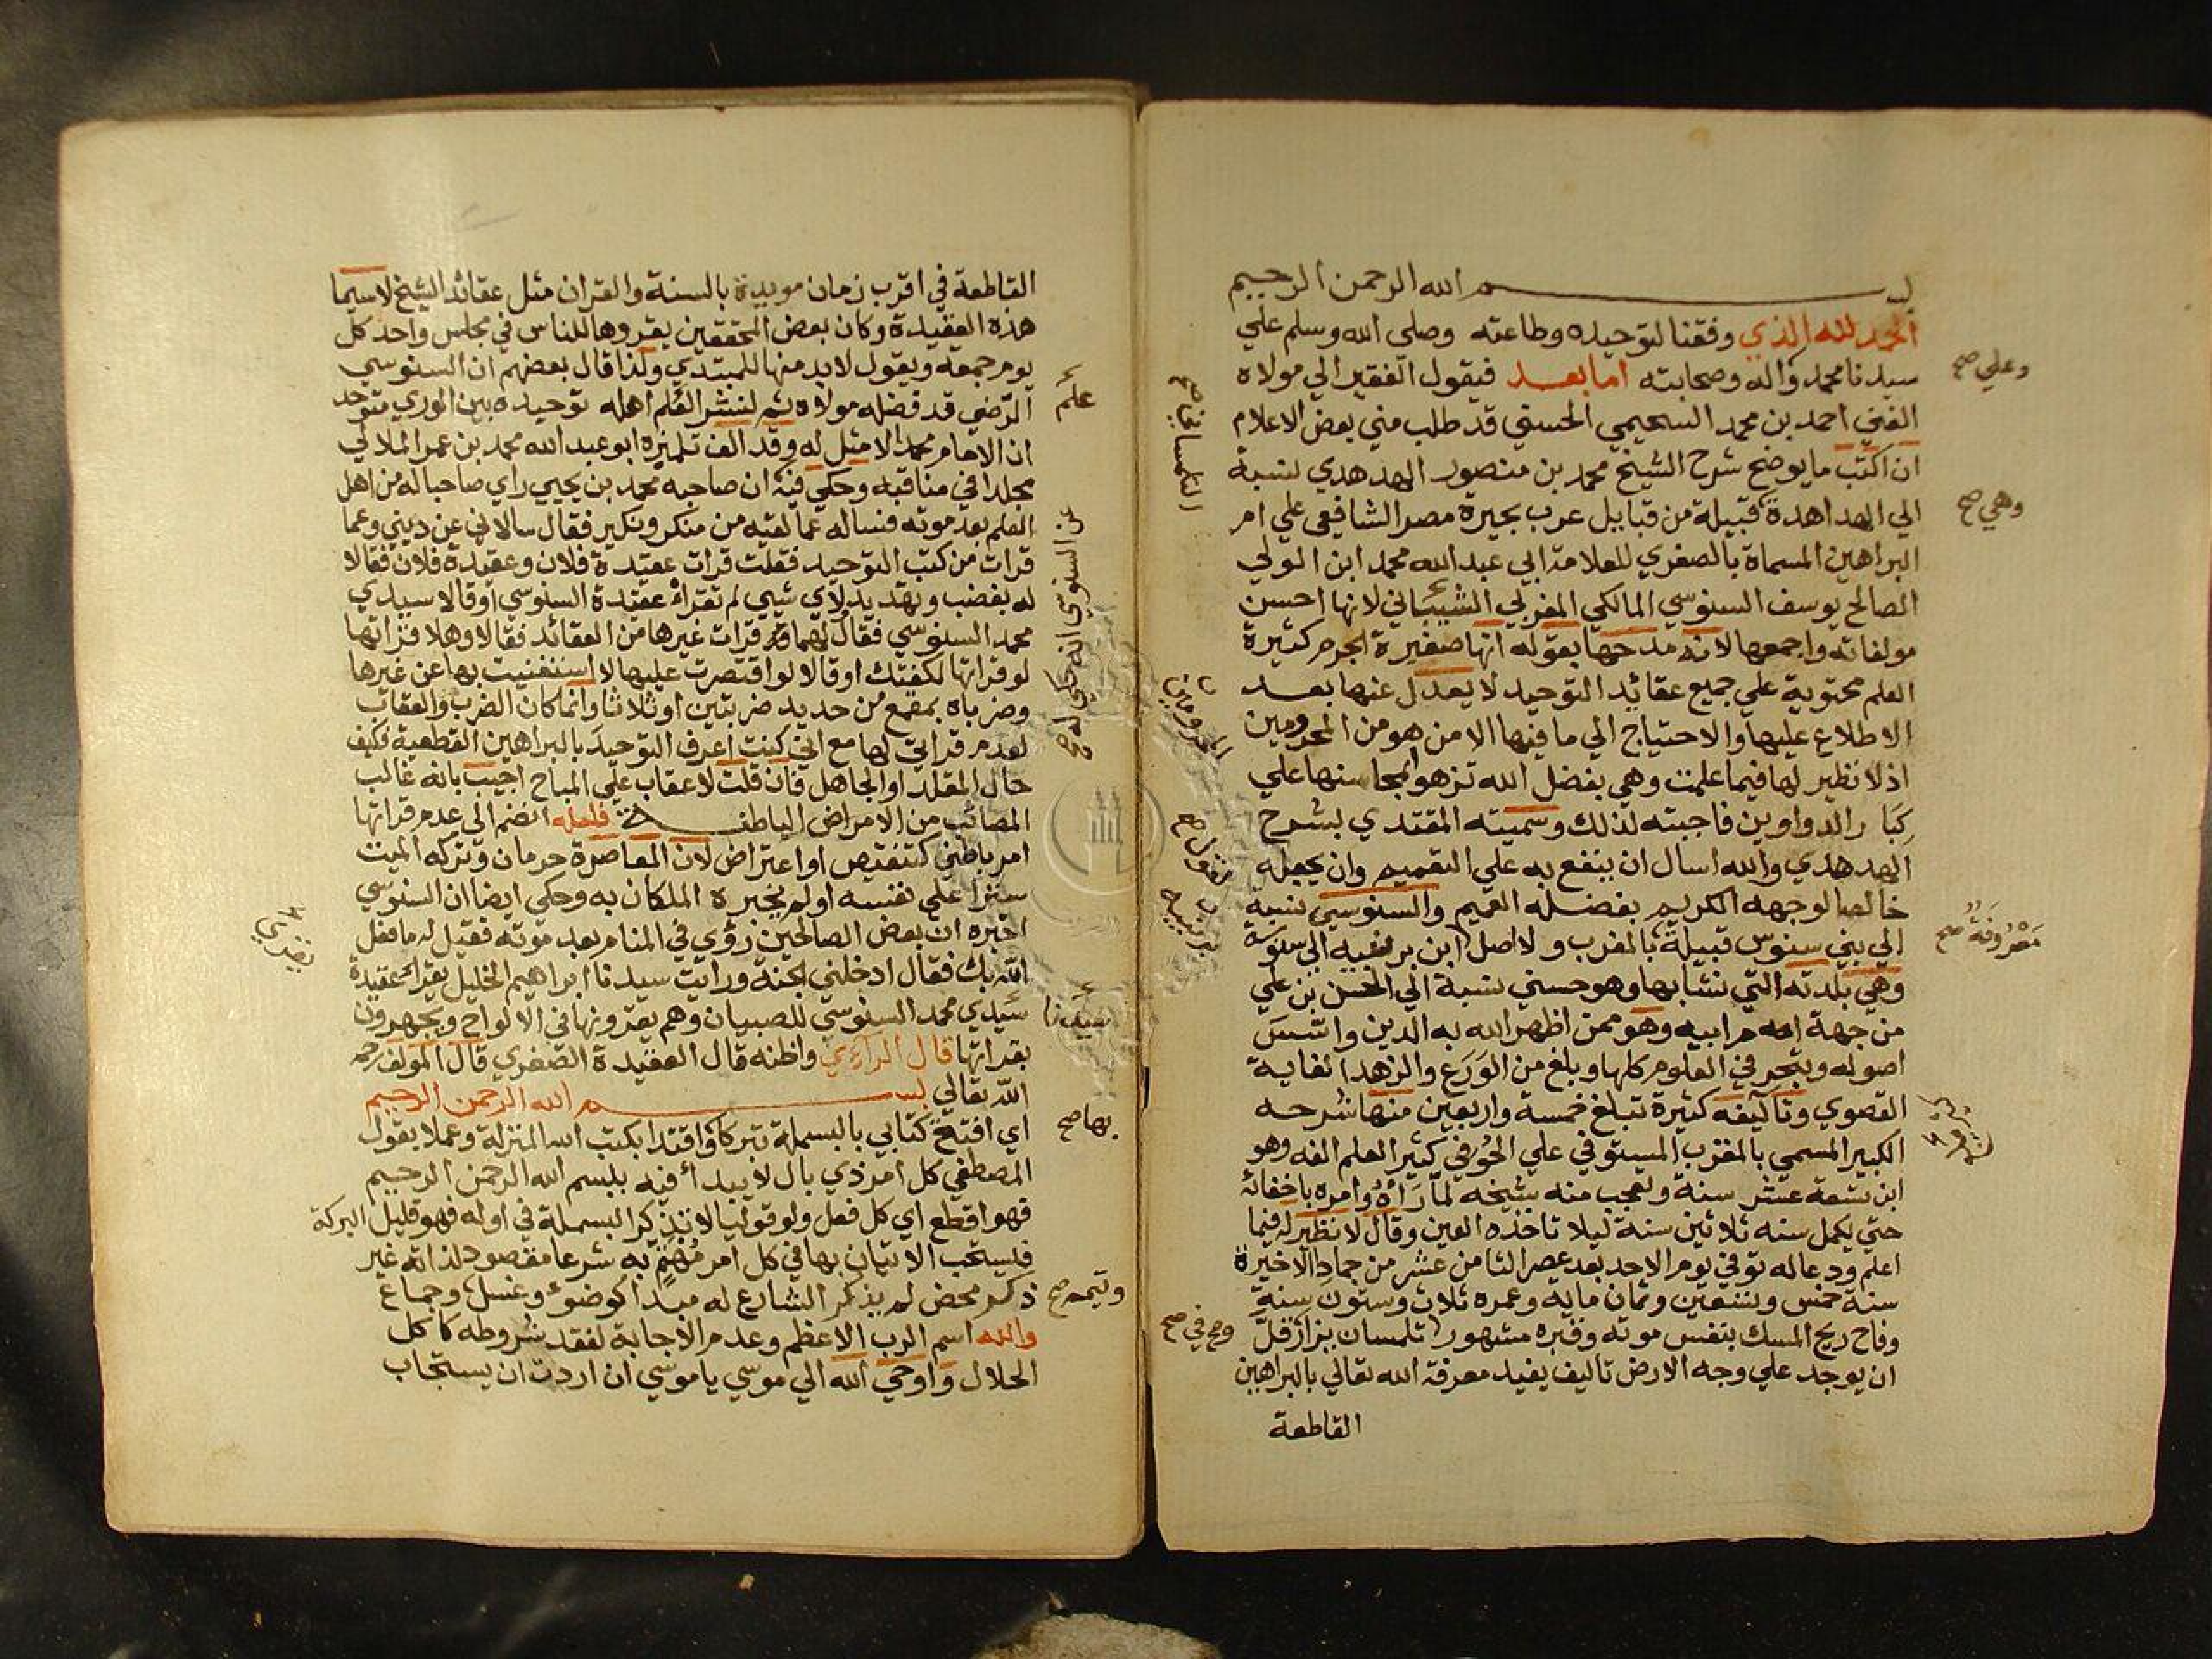 بسم الله الرحمن الرحيم
الحمد لله الذي وفقنا لتوحيده وطاعته وصلى الله وسلم علي
سيدنا محمد واله وصحابته اما بعد فيقول الفقير الي مولاه
الغني احمد بن محمد السحيمي الحسني قد طلب مني بعض الاعلام
ان اكتب ما يوضح شرح الشيخ محمد بن منصور الهدهدي لنسبة
الي الهداهدة قبيلة من قبايل عرب بحيرة مصر الشافعي علي ام
البراهين المسماة بالصغري للعلامة ابي عبد الله محمد ابن الولي
الصالح يوسف السنوسي المالكي المغربي الشيباني لانها احسن
مولفاته واجمعها لانه مدحها بقوله انها صغيرة الجرم كثيرة
العلم محتوية علي جميع عقائد التوحيد لا يعدل عنها بعد
الاطلاع عليها والاحتياج الي ما فيها الا من هو من المحرومين
اذ لا نظير لها فيما علمت وهي بفضل الله تزهوا بمحاسنها علي
كبار الدواوين فاجبته لذلك وسميته المقتدي بشرح
الهدهدي والله اسال ان ينفع به علي التعميم وان يجعله
خالصا لوجهه الكريم بفضله العميم والسنوسي نسبة
الي بني سنوس قبيلة بالمغرب ولا اصل
وهي بلدته التي نشا بها وهو حسني نسبة الي الحسن بن علي
من جهة ام ابيه وهو ممن اظهر الله به الدين واسس
اصوله وتبحر في العلوم كلها وبلغ من الورع والزهد الغاية
القصوي وتاليفه كثيرة تبلغ خمسة واربعين منها شرحه
الكبير المسمي بالمقرب المستوفي علي الحوفي كثير العلم الفه وهو
ابن تسعة عشر سنة وتعجب منه شيخه لما رآه وامره باخفائه
حتي يكمل سنه ثلاثين سنة ليلا تاخذه العين وقال لا نظير له فيما
اعلم ودعا له توفي يوم الاحد بعد عصر الثامن عشر من جماد الاخيرة
سنة خمس وتسعين وثمان مايه وعمره ثلاث وستون سنة
وفاح ريح المسك بنفس موته وقبره مشهور تلمسان يزار قل
ان يوجد علي وجه الارض تاليف يفيد معرفة الله تعالي بالبراهين
القاطعة
وعلي صح
وهي صح
معروفة صح
القاطعة في اقرب زمان مويدة بالسنة والقران مثل عقائد الشيخ لاسيما
هذه العقيدة وكان بعض المحققين يقروها للناس في مجلس واحد كل
يوم جمعة ويقول لا بد منها للمبتدي ولذا قال بعضهم ان السنوسي
الرضي قد فضله مولاه ثم لنشر العلم اهله توحيده بين الوري متوحد
ان الامام محمدا لا مثل له وقد الف تلميذه ابو عبد الله محمد بن عمر الملالي
مجلدا في مناقبه وحكي فيه ان صاحبه محمد بن يحيي راي صاحبا له من اهل
العلم بعد موته فساله عما لقيه من منكر ونكير فقال سالاني عن ديني وعما
قرات من كتب التوحيد فقلت قرات عقيدة فلان وعقيدة فلان فقالا
له بغضب وتهديد لاي شيي لم تقرأ عقيدة السنوسي او قالا سيدي
محمد السنوسي فقال لهما قد قرات غيرها من العقائد فقالا وهلا قراتها
لو قراتها لكفتك او قالا لو اقتصرت عليها لاستغنيت بها عن غيرها
وضرباه بمقمع من حديد ضربتين او ثلاثا وانما كان الضرب والعقاب
لعدم قراتي لها مع اني كنت اعرف التوحيد بالبراهين القطعية فكيف
حال المقلد او الجاهل فان قلت لا عقاب علي المباح اجيب بانه غالب
المصائب من الامراض الباطنة فلعله انضم الي عدم قراتها
امر باطني كتنقيص او اعتراض لان المعاصرة حرمان وتركه الميت
سترا علي نفسه او لم يخبره الملكان به وحكي ايضا ان السنوسي
اخبره ان بعض الصالحين رؤي في المنام بعد موته فقيل له ما فعل
الله بك فقال ادخلني الجنة ورايت سيدنا ابراهيم الخليل يقرا عقيدة
سيدي محمد السنوسي للصبيان وهم يقرونها في الالواح ويجهرون
بقراتها قال الراوي واظنه قال العقيدة الصغري قال المولف رحمه
الله تعالي بسم الله الرحمن الرحيم
اي افتتح كتابي بالبسملة تبركا واقتدا بكتب الله المنزلة وعملا بقول
المصطفي كل امر ذي بال لا يبدأ فيه ببسم الله الرحمن الرحيم
فهو اقطع اي كل فعل ولو قوليا لا تذكر البسملة في اوله فهو قليل البركة
فيستحب الاتيان بها في كل امر مهتم به شرعا مقصود لذاته غير
ذكر محض لم يذكر الشارع له مبدا كوضوء وغسل وجماع
والله اسم الرب الاعظم وعدم الاجابة لفقد شروطه كاكل
الحلال واوحي الله الي موسي يا موسي ان اردت ان يستجاب
علم
سيدنا
بها صح
وتيمم صح